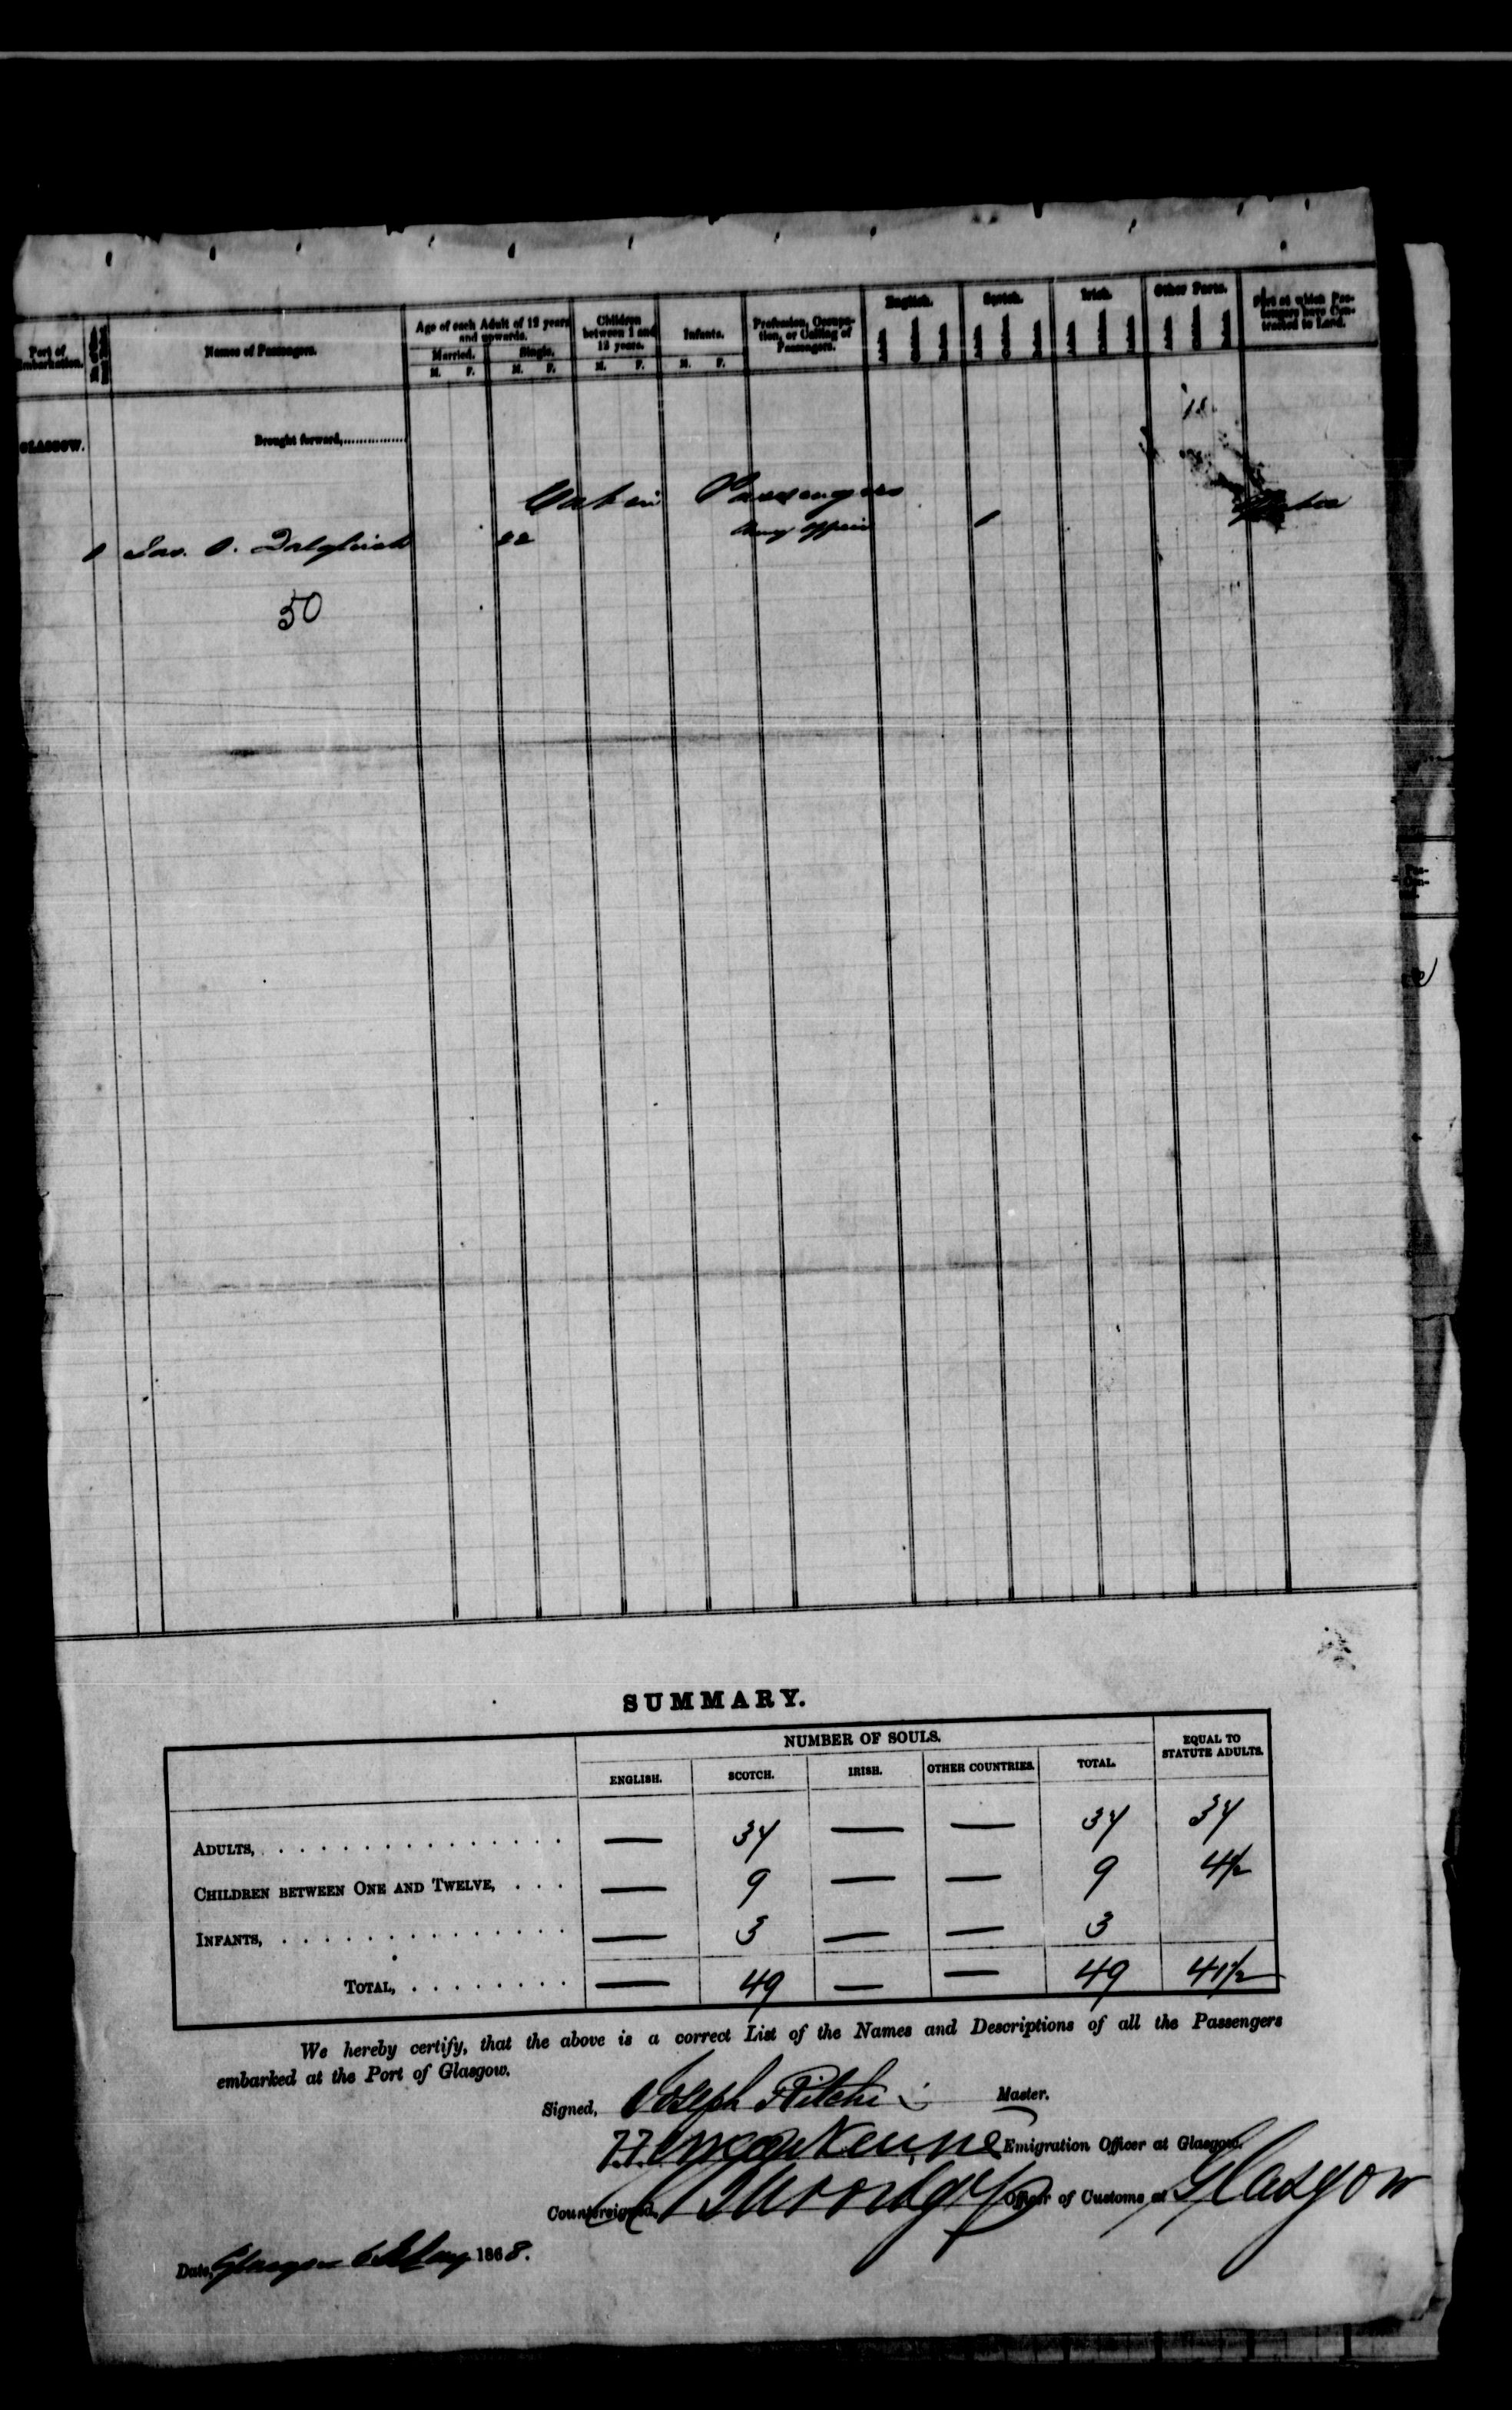 Port of Embarkation.
Names of Passengers.
Age of each Adult of 12 years and upwards.
Married. Single.
M. F. M. F.
Children between 1 and 12 years.
M. F.
Infants.
M. F.
Profession, Occupation, or Calling of Passengers.
English.
Scotch.
Irish.
Other Parts.
Port at which Passengers have Contracted to Land.
GLASGOW.
Brought forward,
Cabin Passengers
1 Jas. O. Dalgleish 22 Army Officer 1 Quebec
50
SUMMARY.
NUMBER OF SOULS.
EQUAL TO STATUTE ADULTS.
ENGLISH. SCOTCH. IRISH. OTHER COUNTRIES. TOTAL.
ADULTS, — 34 — — 34 34
CHILDREN BETWEEN ONE AND TWELVE, — 9 — — 9 4½
INFANTS, — 3 — — 3
TOTAL, — 49 — — 49 41½
We hereby certify, that the above is a correct List of the Names and Descriptions of all the Passengers
embarked at the Port of Glasgow.
Signed, Joseph Ritchie Master.
Emigration Officer at Glasgow.
Countersigned, Officer of Customs at Glasgow
Date, Glasgow 1868.